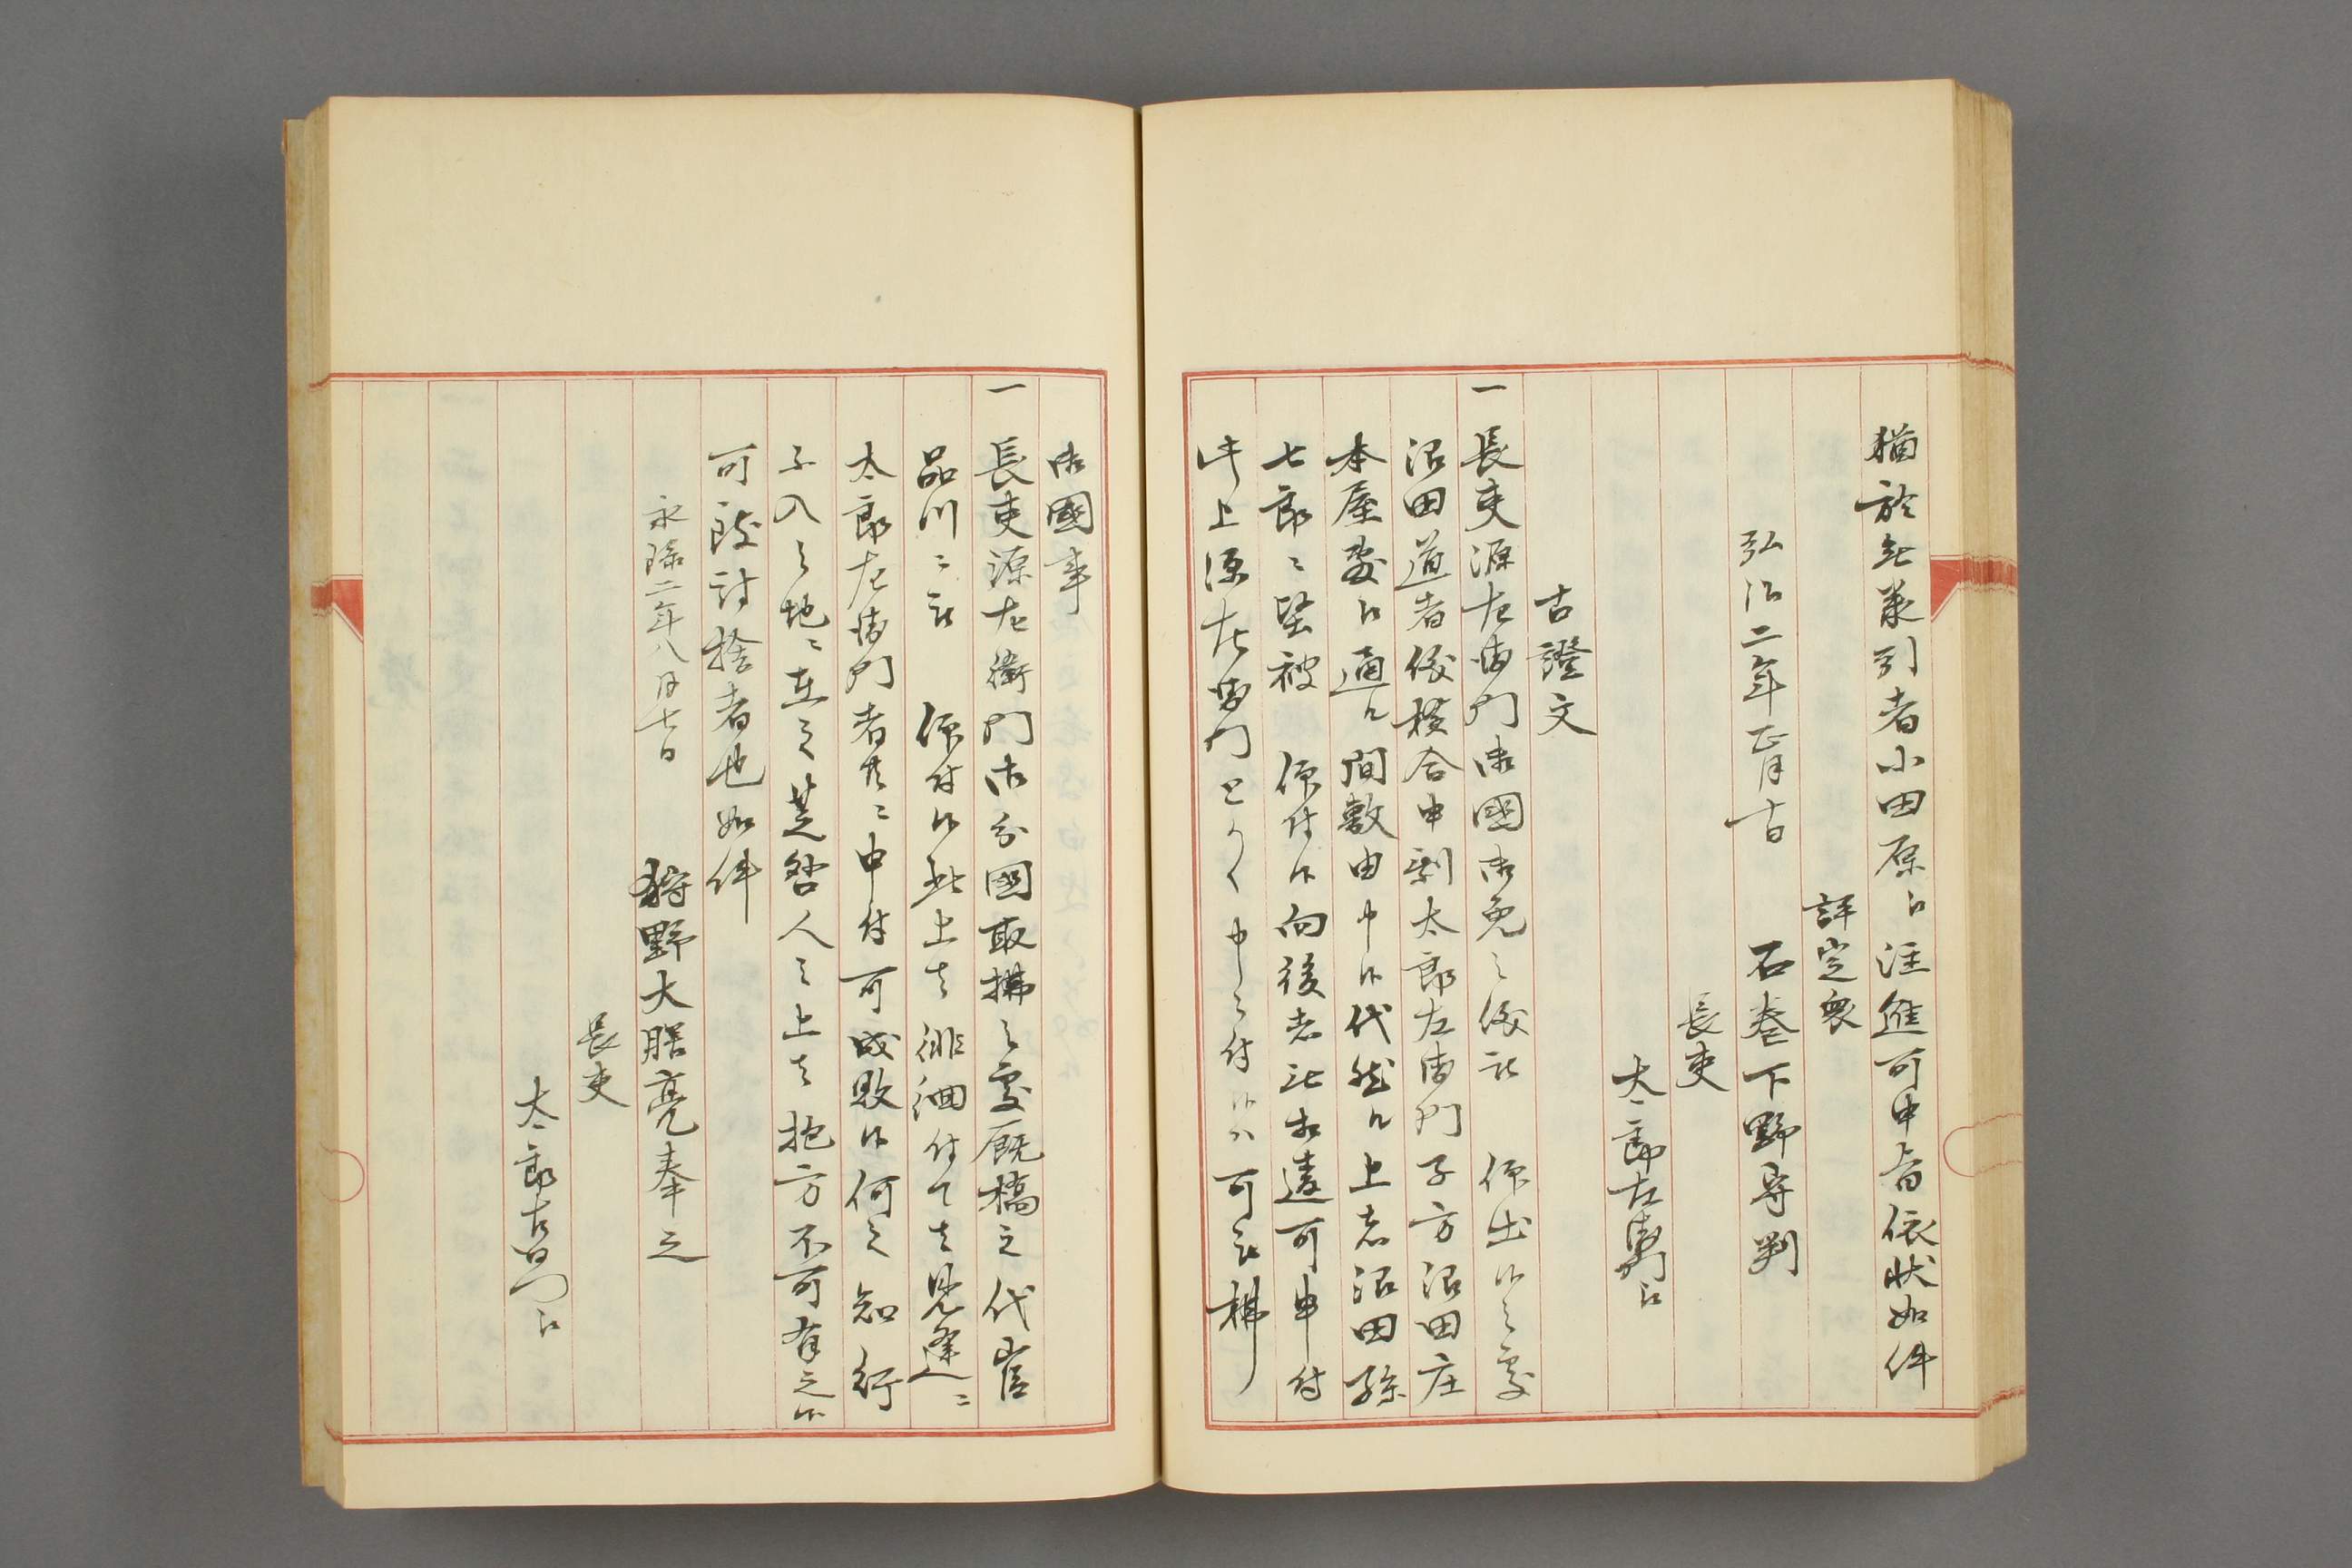 猶於無承引者小田原江注進可申旨依状如件
評定衆
弘治二年正月十日　石巻下野守判
長吏
太郎左衛門江
古證文
一長吏源左衛門御國御免之儀被　仰出候之處
沼田道者儀横合申剰太郎左衛門子方沼田庄
本屋敷江通ル間敷由申候代然ル上者沼田孫
七郎ニ堅被　仰付候向後者無相違可申付
此上源左衛門とかく申ニ付候ハヽ可被拂
御國事
一長吏源左衛門御分國取拂之處厩橋之代官
品川ニ被　仰付候此上者徘徊付て者見逢ニ
太郎左衛門者共ニ申付可成敗候何之知行
不入之地ニ在之共咎人之上者抱方不可有之候
可致討捨者也如件
永禄二年八月七日　狩野大膳亮奉之
長吏
太郎左衛門江